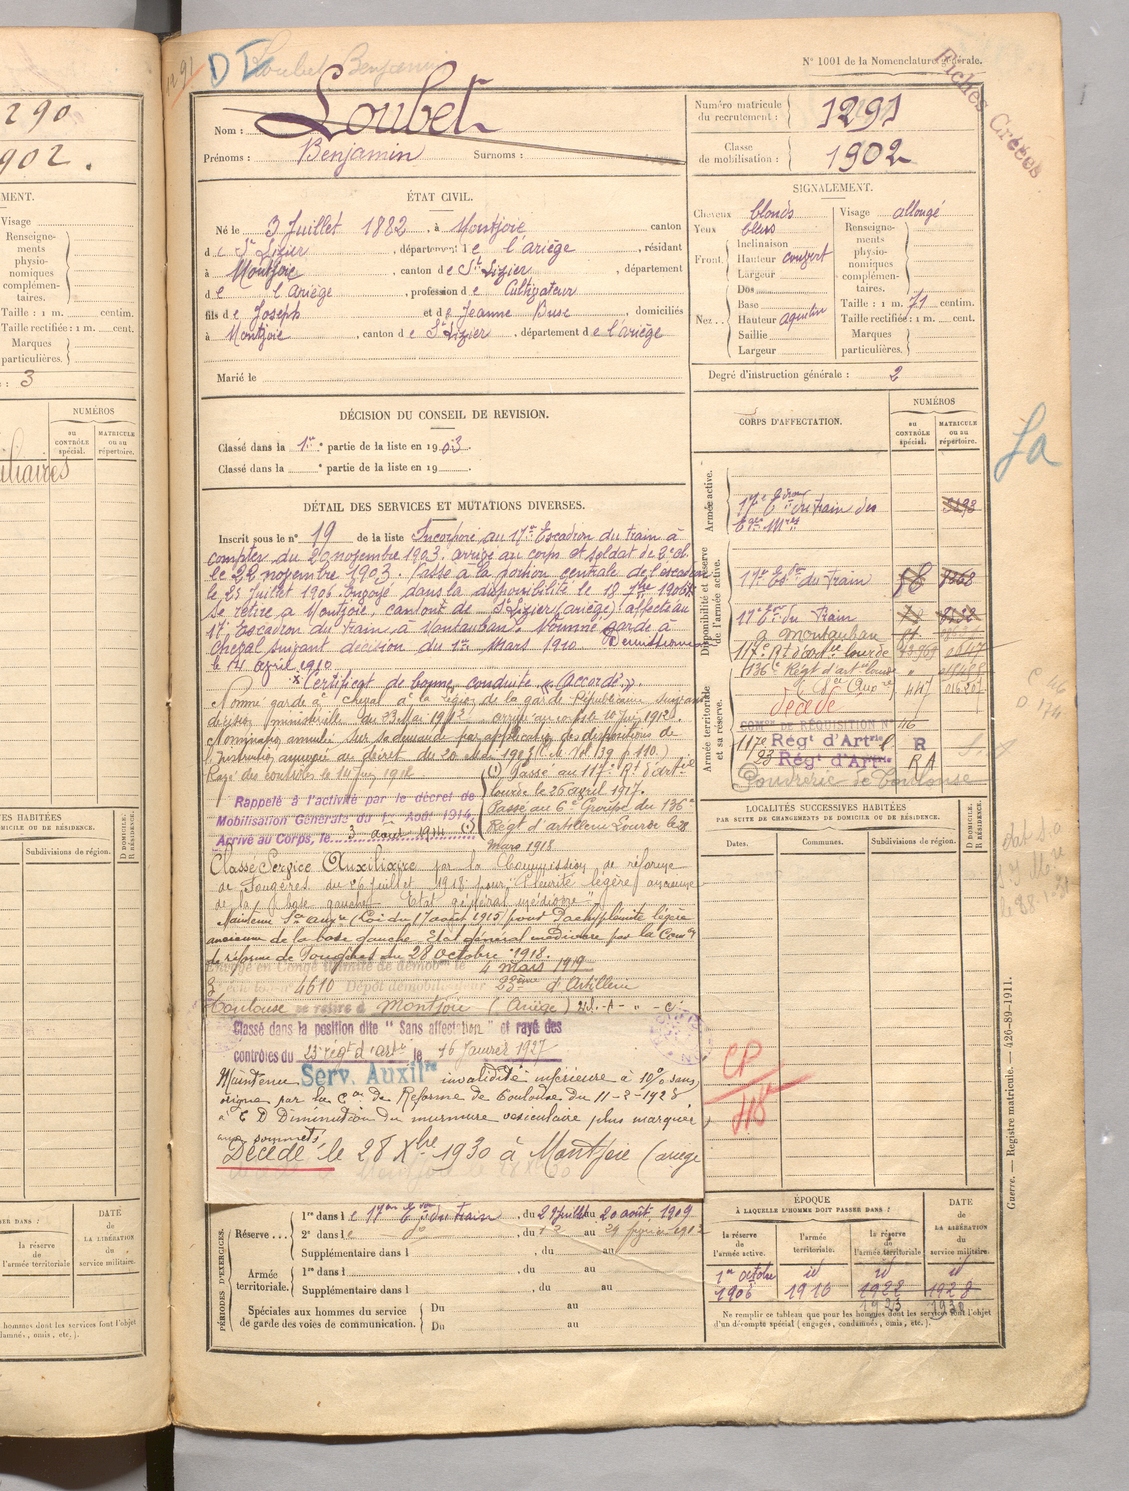 290
902.
MENT.
Visage
Renseigne-
ments
physio-
nomiques
complémen-
taires.
Taille : 1 m. centim.
Taille rectifiée : 1 m. cent.
Marques
particulières.
: 3
NUMÉROS
au CONTRÔLE spécial.
MATRICULE ou au répertoire.
Subdivisions de région.
D DOMICILE. R RÉSIDENCE.
DATE de LA LIBÉRATION du service militaire.
la réserve de l'armée territoriale
1291
D I
Loubet Benjamin
N° 1001 de la Nomenclature générale.
Fiches Créées
Nom : Loubet
Prénoms : Benjamin Surnoms :
Numéro matricule du recrutement : 1291
Classe de mobilisation : 1902
ÉTAT CIVIL.
Né le 3 Juillet 1882, à Montjoie canton
de St Lizier, département de l'ariège, résidant
à Montjoie, canton de St Lizier, département
de l'Ariège, profession de Cultivateur
fils de Joseph et de Jeanne Buse, domiciliés
à Montjoie, canton de St Lizier, département de l'ariège
Marié le
SIGNALEMENT.
Cheveux blonds
Yeux bleus
Front. Inclinaison
Hauteur couvert
Largeur
Nez.. Dos
Base
Hauteur aquilin
Saillie
Largeur
Visage allongé
Renseigne-
ments
physio-
nomiques
complémen-
taires.
Taille : 1 m. 71 centim.
Taille rectifiée : 1 m. cent.
Marques
particulières.
Degré d'instruction générale : 2
DÉCISION DU CONSEIL DE REVISION.
Classé dans la 1re partie de la liste en 1903
Classé dans la ° partie de la liste en 19
DÉTAIL DES SERVICES ET MUTATIONS DIVERSES.
Inscrit sous le n° 19 de la liste Incorporé au 17e Escadron du train à
compter du 20 novembre 1903. arrivé au corps et soldat de 2e cl.
le 22 novembre 1903. Passé à la portion centrale de l'escadron
le 25 Juillet 1906. Envoyé dans la disponibilité le 18 7bre 1906
Se retire à Montjoie, canton de St Lizier (ariège) affecté au
17e Escadron du train à Montauban. Nommé garde à
cheval suivant décision du 1er Mars 1910 Démissionnaire
le 14 avril 1910
x Certificat de bonne conduite « Accordé »
Nommé garde à cheval à la légion de la garde Républicaine suivant
décision ministérielle du 23 Mai 1912. arrivé au corps le 10 Juin 1912.
Nomination annulée sur sa demande par application des dispositions de
l'Instruction annexée au décret du 20 Mai 1903
Rayé des contrôles le 14 Juin 1912
Rappelé à l'activité par le décret de
Mobilisation Générale du 1er Août 1914.
Arrivé au Corps, le 3 aout 1914 (1)
(1) Passé au 117e Rt d'artie
lourde le 26 avril 1917.
Passé au 6e Groupe du 136e
Régt d'artillerie Lourde le 8
mars 1918
Classé Service Auxiliaire par la Commission de réforme
de Fougères du 26 juillet 1918 pour
Maintenu Sce auxre (Loi du 17 août 1915) pour
ancienne de la base gauche. Etat général médiocre par la Comon
de réforme de Fougères du 28 octobre 1918.
Envoyé en Congé illimité de démobon le 4 mars 1919
4610 Dépôt démobilisateur 23ème d'Artillerie
Toulouse se retire à Montjoie (Ariège)
Classé dans la position dite "Sans affectation" et rayé des
contrôles du 23e régt d'arte le 16 Janvier 1927
Maintenu Serv. Auxilre invalidité inférieure à 10% sans
origine par la Con de Réforme de Toulouse du 11-2-1928
Diminution du murmure vésiculaire plus marquée
aux sommets
Décédé le 28 Xbre 1930 à Montjoie (ariège
CORPS D'AFFECTATION.
NUMÉROS
au CONTRÔLE spécial.
MATRICULE ou au répertoire.
Armée active.
17e Escron du train des
Eqges Mres
3198
Disponibilité et réserve de l'armée active.
17e Eson du train 58 1868
17e Eon du train 8132
à Montauban
117e Rt d'art. lourde
136e Régt d'art lourde
447
Décédé
Armée territoriale et sa réserve.
COMon DE RÉQUISITION N° 46
117e Régt d'Artrie l R
23 Régt d'Artrie RA
Poudrerie de Toulouse
Sa
LOCALITÉS SUCCESSIVES HABITÉES
PAR SUITE DE CHANGEMENTS DE DOMICILE OU DE RÉSIDENCE.
Dates.
Communes.
Subdivisions de région.
D DOMICILE. R RÉSIDENCE.
CP
Guerre. — Registre matricule. — 426-89-1911.
PÉRIODES D'EXERCICES.
Réserve ... 1re dans le 17em Eon du train, du 29 juillet au 20 août 1909
2e dans le do, du au
Supplémentaire dans l , du au
Armée territoriale. 1re dans l , du au
Supplémentaire dans l , du au
Spéciales aux hommes du service de garde des voies de communication. Du au
Du au
ÉPOQUE
À LAQUELLE L'HOMME DOIT PASSER DANS :
la réserve de l'armée active.
l'armée territoriale.
la réserve de l'armée territoriale
DATE de LA LIBÉRATION du service militaire.
1er octobre id id id
1906 1916 1922 1928
1923 1930
Ne remplir ce tableau que pour les hommes dont les services font l'objet
d'un décompte spécial (engagés, condamnés, omis, etc.).